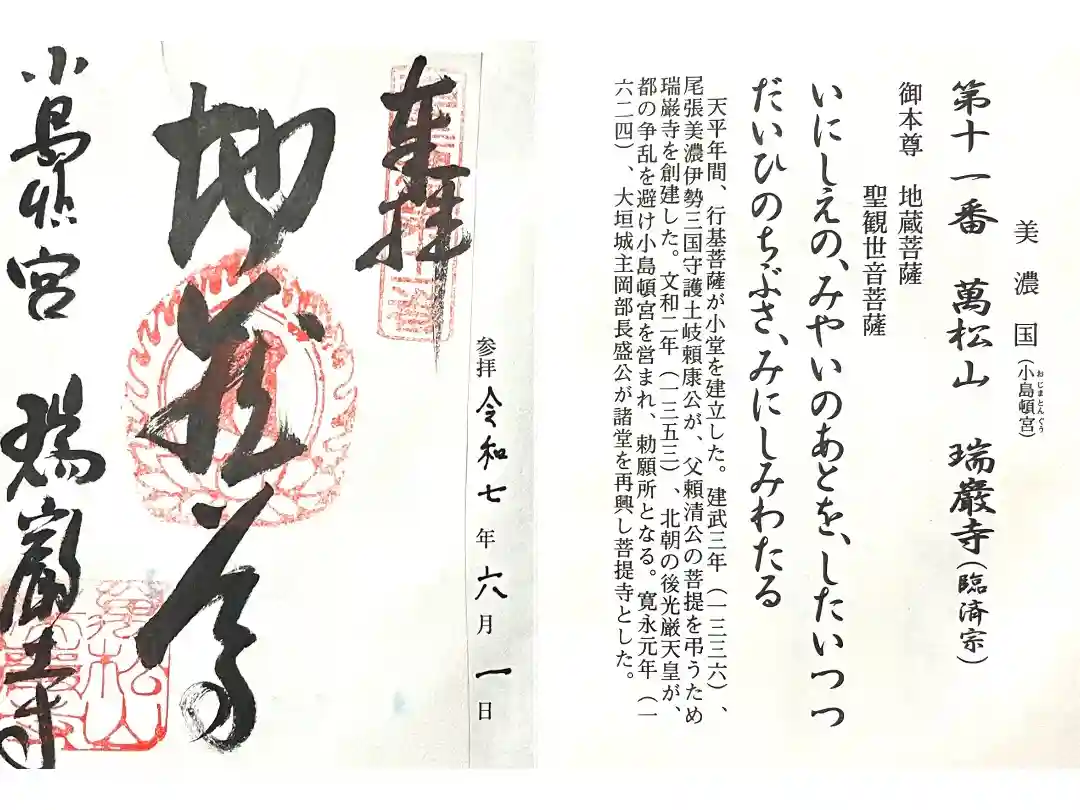 美濃国(小島頓宮)
おじまとんぐう
第十一番 萬松山 瑞巌寺(臨済宗)
御本尊 地蔵菩薩
聖観世音菩薩
いにしえの、みやいのあとを、したいつつ
だいひのちぶさ、みにしみわたる
天平年間、行基菩薩が小堂を建立した。建武三年(一三三六)、
尾張美濃伊勢三国守護土岐頼康公が、父頼清公の菩提を弔うため
瑞巌寺を創建した。文和二年(一三五三)、北朝の後光厳天皇が、
都の争乱を避け小島頓宮を営まれ、勅願所となる。寛永元年(一
六二四)、大垣城主岡部長盛公が諸堂を再興し菩提寺とした。
参拝 令和七年六月一日
奉拝
地蔵尊
小島頓宮 瑞巌寺